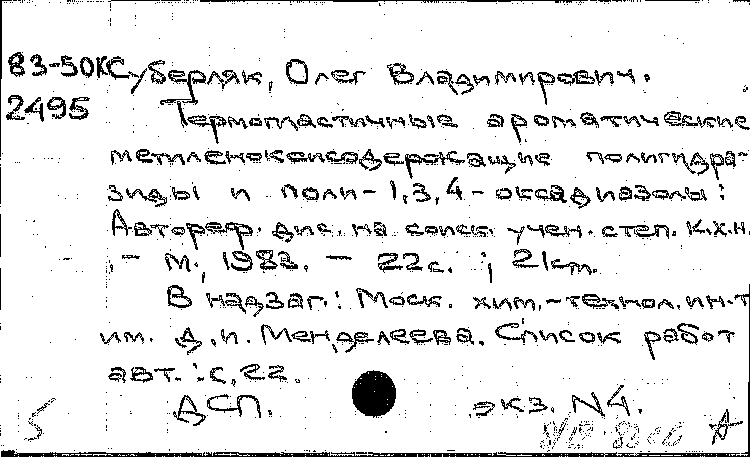 83-50КС Суберляк, Олег Владимирович.
2495 Термопластичные ароматические
метиленоксисодержащие полигидра-
зиды и поли-1,3,4-оксадиазолы:
Автореф. дис. на соиск. учен. степ. к.х.н.
.- М., 1983. - 22с. ; 21см.
В надзаг.: Моск. хим.-технол. ин-т
им. Д.И. Менделеева. Список работ
авт.: с. 22.
ДСП. экз. N4.
5